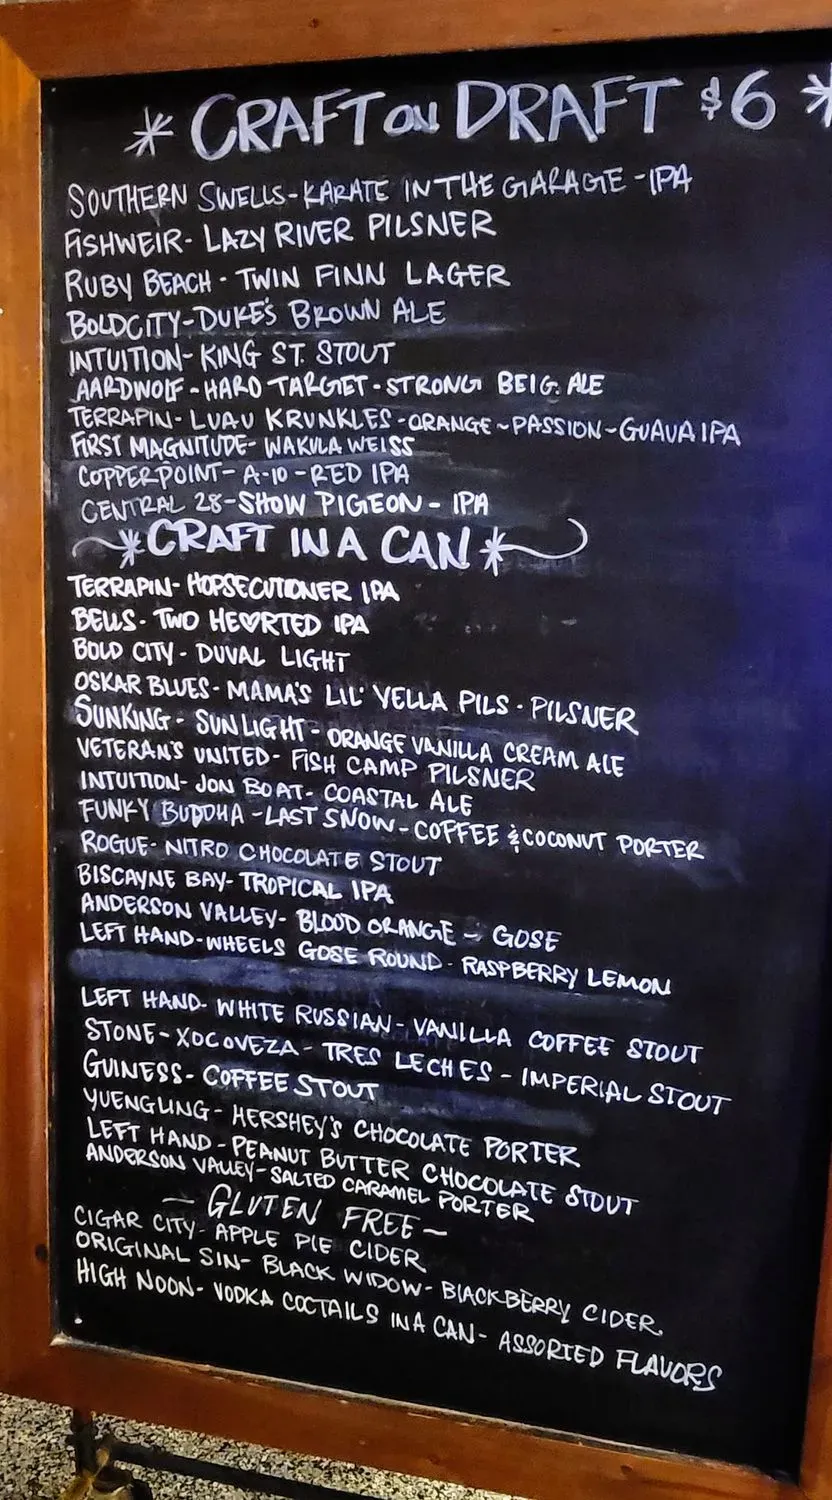 * CRAFT ON DRAFT $6 *
SOUTHERN SWELLS-KARATE IN THE GARAGE -IPA
FISHWEIR- LAZY RIVER PILSNER
RUBY BEACH - TWIN FINN LAGER
BOLDCITY-DUKE'S BROWN ALE
INTUITION- KING ST. STOUT
AARDWOLF - HARD TARGET - STRONG BELG. ALE
TERRAPIN- LUAU KRUNKLES -ORANGE~PASSION~GUAVA IPA
FIRST MAGNITUDE- WAKULA WEISS
COPPERPOINT- A-10 -RED IPA
CENTRAL 28-SHOW PIGEON - IPA
*CRAFT IN A CAN*
TERRAPIN- HOPSECUTIONER IPA
BELLS- TWO HE♥RTED IPA
BOLD CITY - DUVAL LIGHT
OSKAR BLUES- MAMA'S LIL' YELLA PILS - PILSNER
SUNKING - SUNLIGHT - ORANGE VANILLA CREAM ALE
VETERAN'S UNITED- FISH CAMP PILSNER
INTUITION- JON BOAT- COASTAL ALE
FUNKY BUDDHA -LAST SNOW-COFFEE & COCONUT PORTER
ROGUE- NITRO CHOCOLATE STOUT
BISCAYNE BAY- TROPICAL IPA
ANDERSON VALLEY- BLOOD ORANGE - GOSE
LEFT HAND-WHEELS GOSE ROUND- RASPBERRY LEMON
LEFT HAND- WHITE RUSSIAN- VANILLA COFFEE STOUT
STONE- XOCOVEZA- TRES LECHES - IMPERIAL STOUT
GUINESS- COFFEE STOUT
YUENGLING- HERSHEY'S CHOCOLATE PORTER
LEFT HAND - PEANUT BUTTER CHOCOLATE STOUT
ANDERSON VALLEY-SALTED CARAMEL PORTER
- GLUTEN FREE -
CIGAR CITY- APPLE PIE CIDER
ORIGINAL SIN- BLACK WIDOW- BLACKBERRY CIDER
HIGH NOON- VODKA COCTAILS IN A CAN- ASSORTED FLAVORS